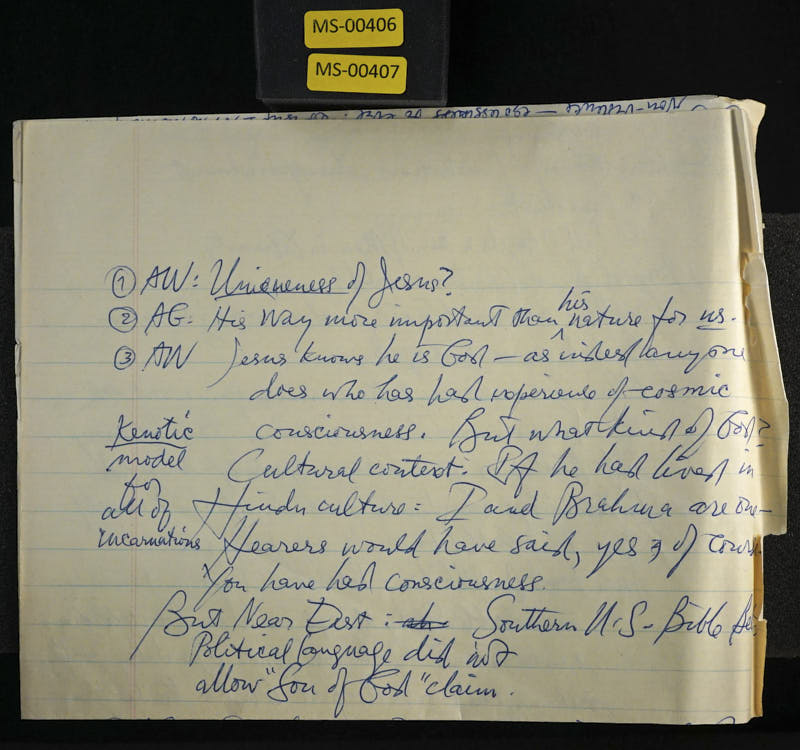 MS-00406
MS-00407
Non-violence — egolessness
① AW: Uniqueness of Jesus?
his
② AG: His Way more important than nature for us.
③ AW Jesus knows he is God — as indeed anyone
does who has had experience of cosmic
consciousness. But what kind of God?
Kenotic
model
for
all of
incarnations
Cultural context: If he had lived in
Hindu culture: I and Brahma are one—
Hearers would have said, yes, of cours
You have had consciousness.
But Near East: Southern U.S- Bible Be
Political language did not
allow "Son of God" claim.